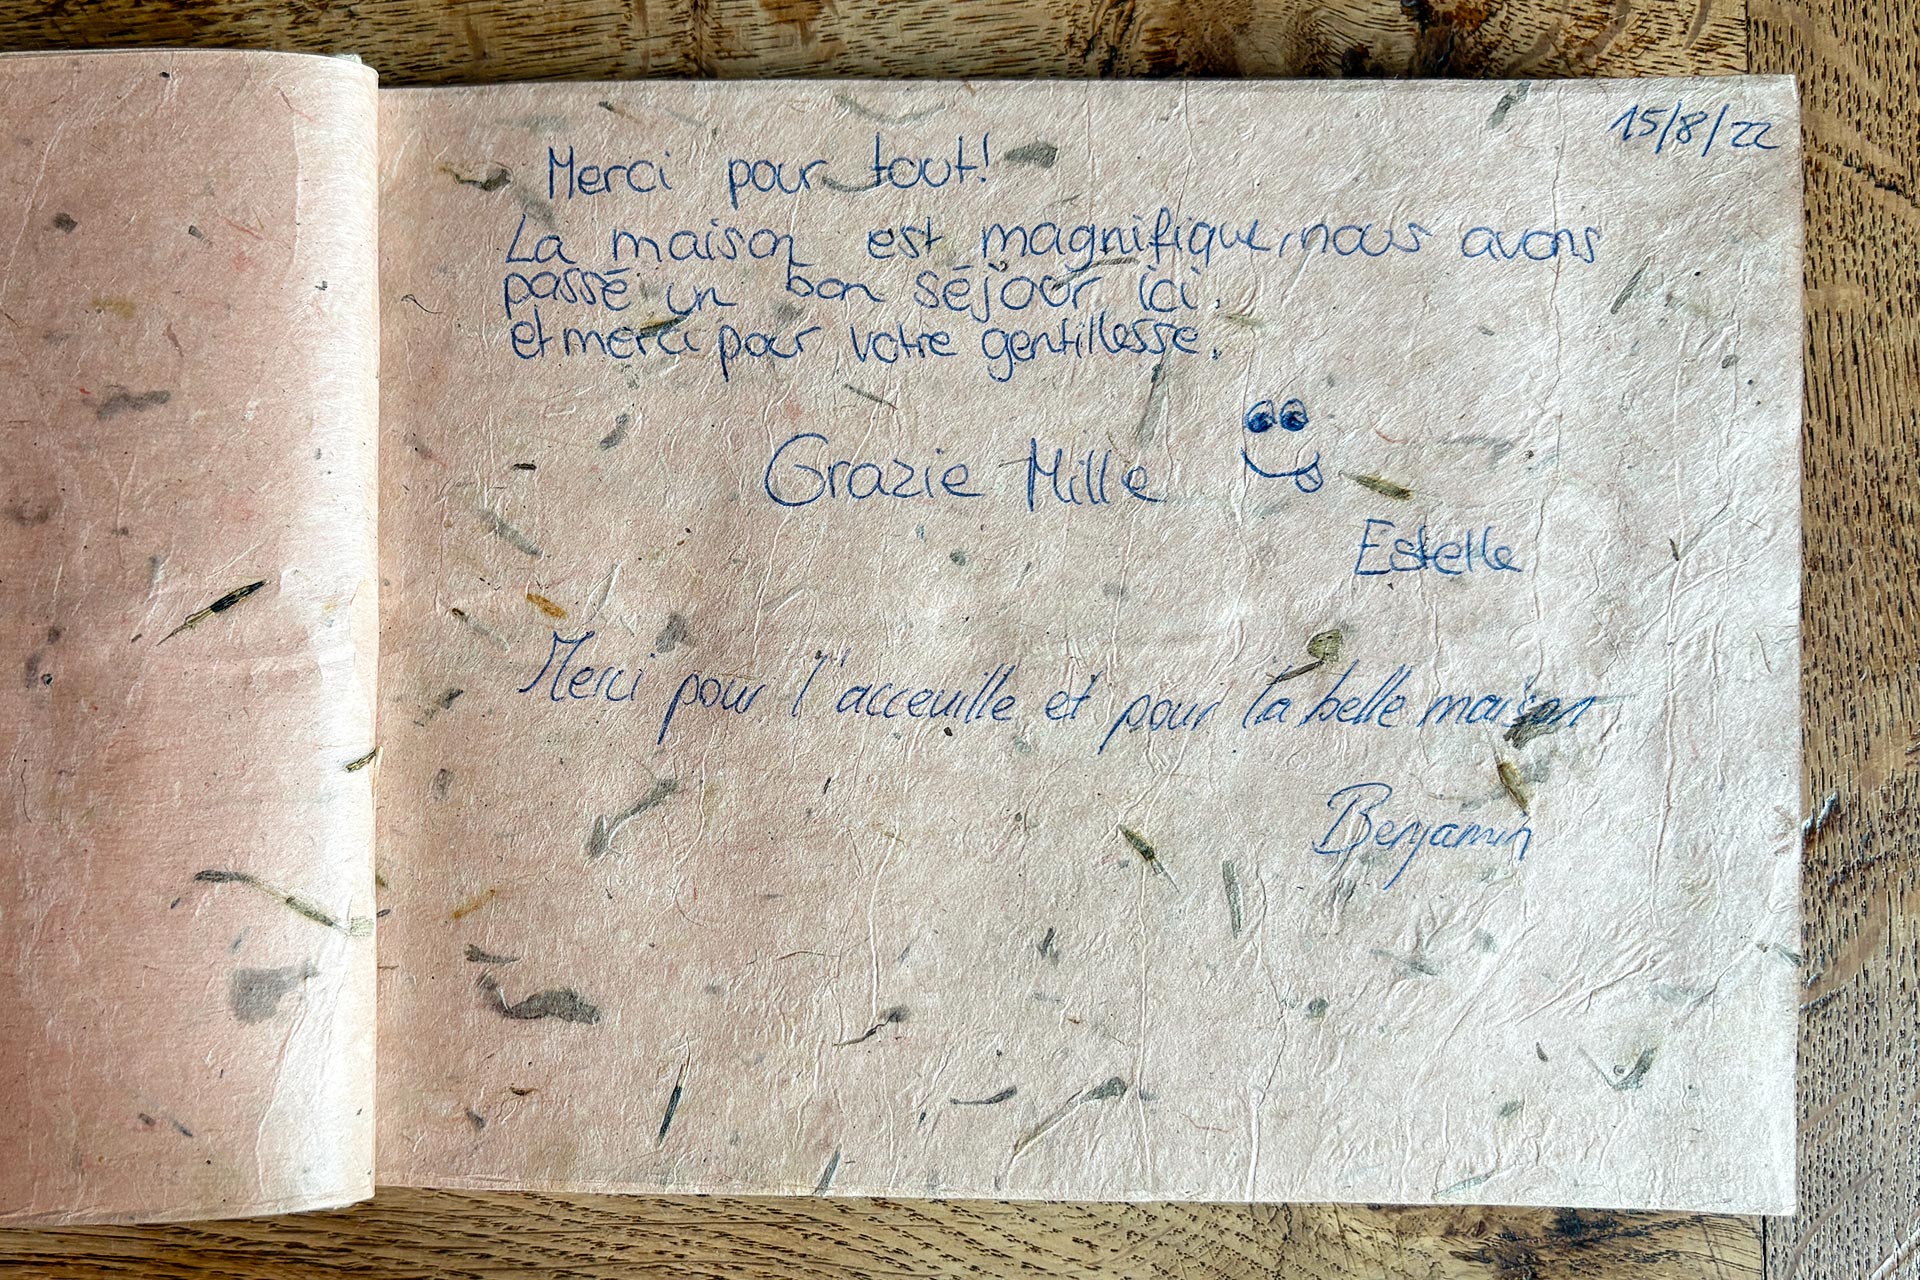 15/8/22
Merci pour tout!
La maison est magnifique, nous avons
passé un bon séjour ici.
et merci pour votre gentillesse.
Grazie Mille
Estelle
Merci pour l'acceuille et pour la belle maison
Benjamin